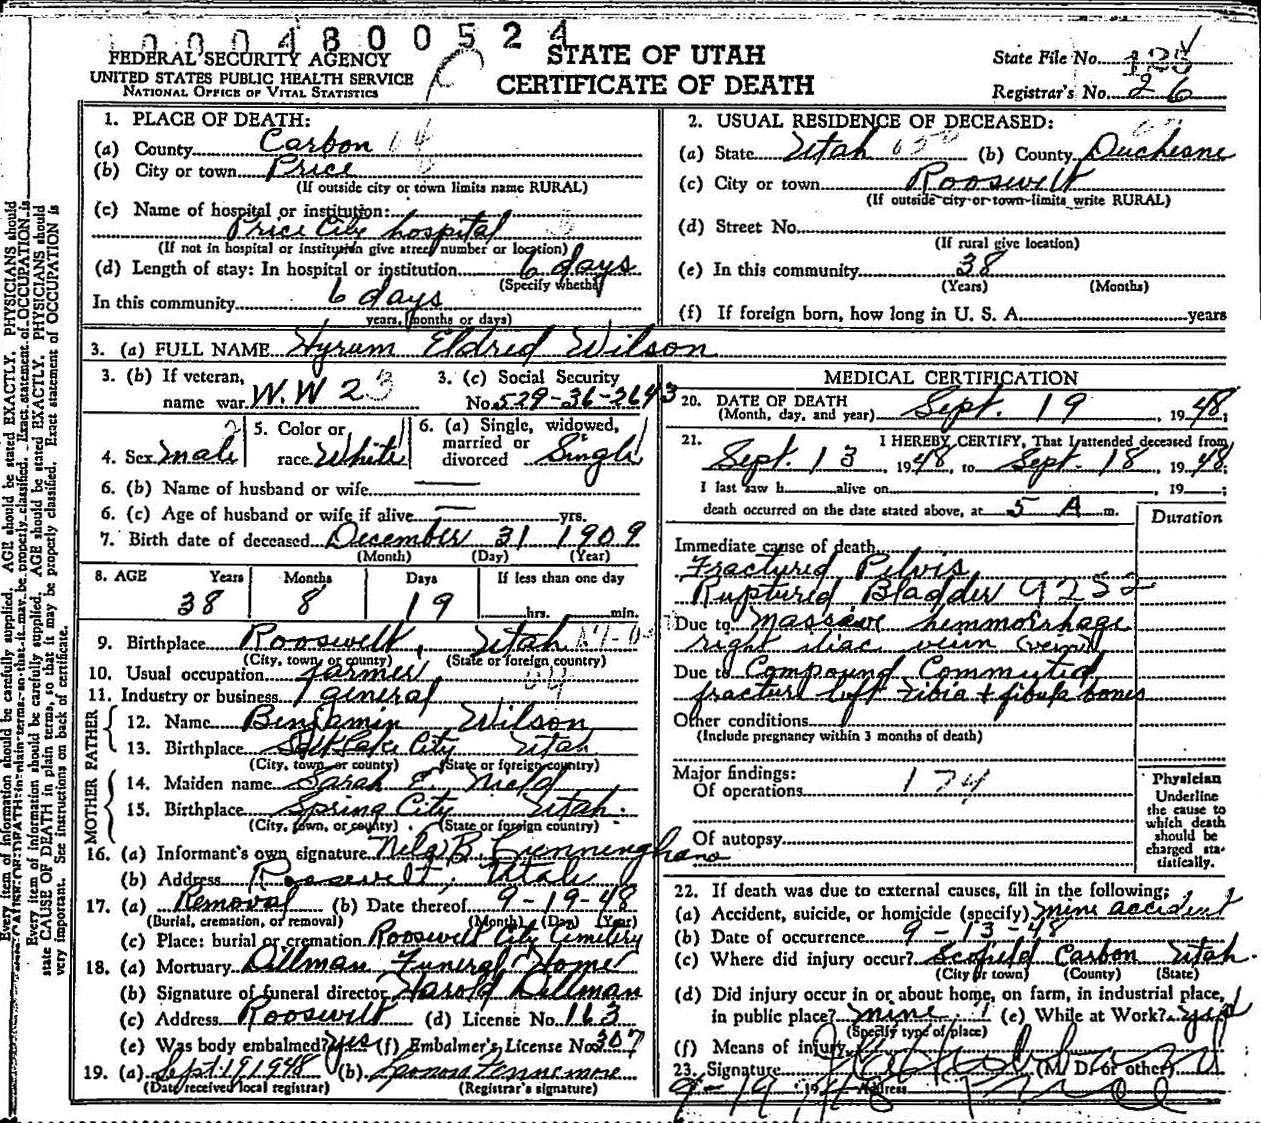 0004800524
FEDERAL SECURITY AGENCY
UNITED STATES PUBLIC HEALTH SERVICE
NATIONAL OFFICE OF VITAL STATISTICS
STATE OF UTAH
CERTIFICATE OF DEATH
State File No.
Registrar's No. 26
1. PLACE OF DEATH:
(a) County Carbon
(b) City or town Price
(If outside city or town limits name RURAL)
(c) Name of hospital or institution:
Price City hospital
(If not in hospital or institution give street number or location)
(d) Length of stay: In hospital or institution 6 days
(Specify whether
In this community 6 days
years, months or days)
2. USUAL RESIDENCE OF DECEASED:
(a) State Utah (b) County Duchesne
(c) City or town Roosevelt
(If outside city or town limits write RURAL)
(d) Street No.
(If rural give location)
(e) In this community 38
(Years) (Months)
(f) If foreign born, how long in U. S. A. years
3. (a) FULL NAME Hyrum Eldred Wilson
3. (b) If veteran,
name war W.W 2
3. (c) Social Security
No. 529-36-2643
4. Sex male
5. Color or
race White
6. (a) Single, widowed,
married or
divorced Single
6. (b) Name of husband or wife —
6. (c) Age of husband or wife if alive — yrs.
7. Birth date of deceased December 31 1909
(Month) (Day) (Year)
8. AGE Years Months Days If less than one day
38 8 19 hrs. min.
9. Birthplace Roosevelt, Utah
(City, town or county) (State or foreign country)
10. Usual occupation farmer
11. Industry or business general
FATHER
12. Name Benjamin Wilson
13. Birthplace Salt Lake City Utah
(City, town or county) (State or foreign country)
MOTHER
14. Maiden name Sarah E. Nield
15. Birthplace Spring City Utah
(City, town, or county) (State or foreign country)
16. (a) Informant's own signature B.
(b) Address Roosevelt, Utah
17. (a) Removal (b) Date thereof 9-19-48
(Burial, cremation, or removal) (Month) (Day) (Year)
(c) Place: burial or cremation Roosevelt City Cemetery
18. (a) Mortuary Dillman Funeral Home
(b) Signature of funeral director Harold Dillman
(c) Address Roosevelt (d) License No. 163
(e) Was body embalmed? yes (f) Embalmer's License No. 307
19. (a) Sept. 19, 1948 (b)
(Date received local registrar) (Registrar's signature)
MEDICAL CERTIFICATION
20. DATE OF DEATH
(Month, day, and year) Sept. 19, 1948;
21. I HEREBY CERTIFY, That I attended deceased from
Sept. 13, 1948, to Sept. 18, 1948;
I last saw h alive on , 19 ;
death occurred on the date stated above, at 5 A m.
Duration
Immediate cause of death
Fractured Pelvis
Ruptured Bladder 9252
Due to Massive hemmorrhage
right iliac veun (vein)
Due to Compound Commuted
fracture left tibia + fibula bones
Other conditions
(Include pregnancy within 3 months of death)
Major findings:
Of operations 174
Of autopsy
Physician
Underline
the cause to
which death
should be
charged sta-
tistically.
22. If death was due to external causes, fill in the following:
(a) Accident, suicide, or homicide (specify) mine accident
(b) Date of occurrence 9-13-48
(c) Where did injury occur? Scofield Carbon Utah.
(City or town) (County) (State)
(d) Did injury occur in or about home, on farm, in industrial place,
in public place? mine (e) While at Work? yes
(Specify type of place)
(f) Means of injury
23. Signature (M. D. or other)
9-19 1948 Address Price
Every item of information should be carefully supplied. AGE should be stated EXACTLY. PHYSICIANS should
state CAUSE OF DEATH in plain terms, so that it may be properly classified. Exact statement of OCCUPATION is
very important. See instructions on back of certificate.